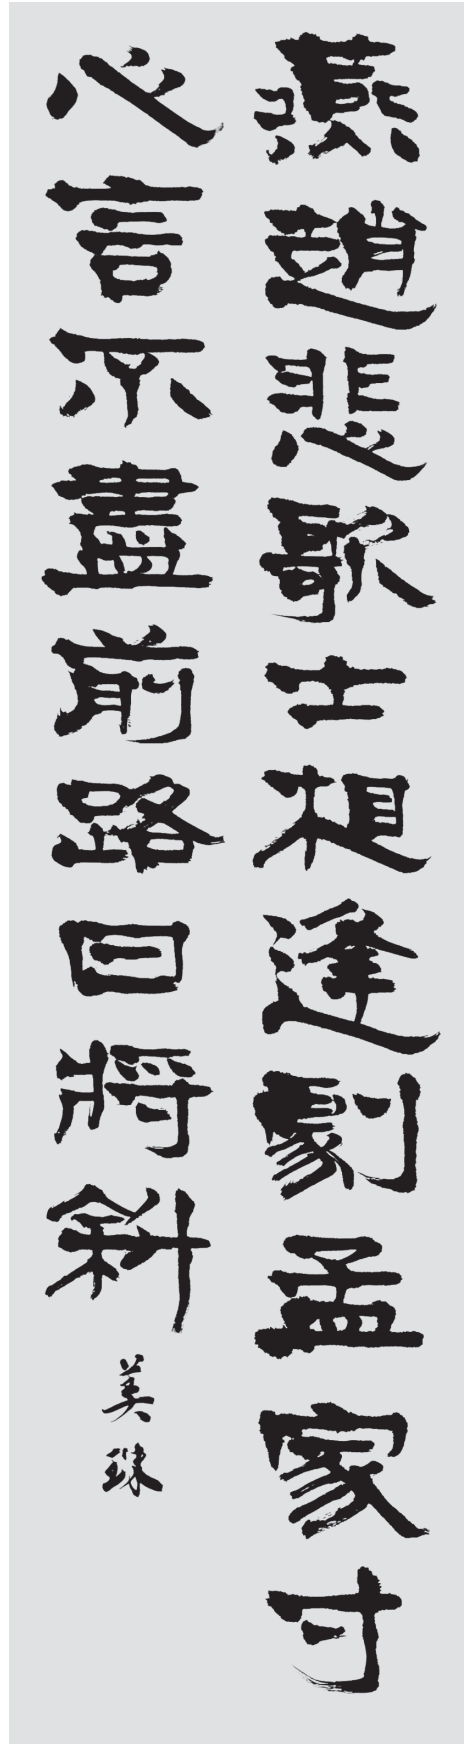 燕趙悲歌士相逢劇孟家寸
心言不盡前路日將斜
美珠